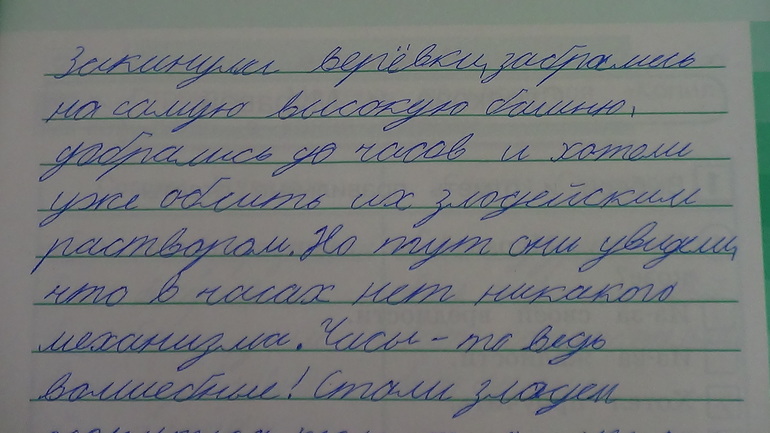 Закинули верёвки, забрались
на самую высокую башню,
добрались до часов и хотели
уже облить их злодейским
раствором. Но тут они увидели,
что в часах нет никакого
механизма. Часы - то ведь
волшебные! Стали злодеи